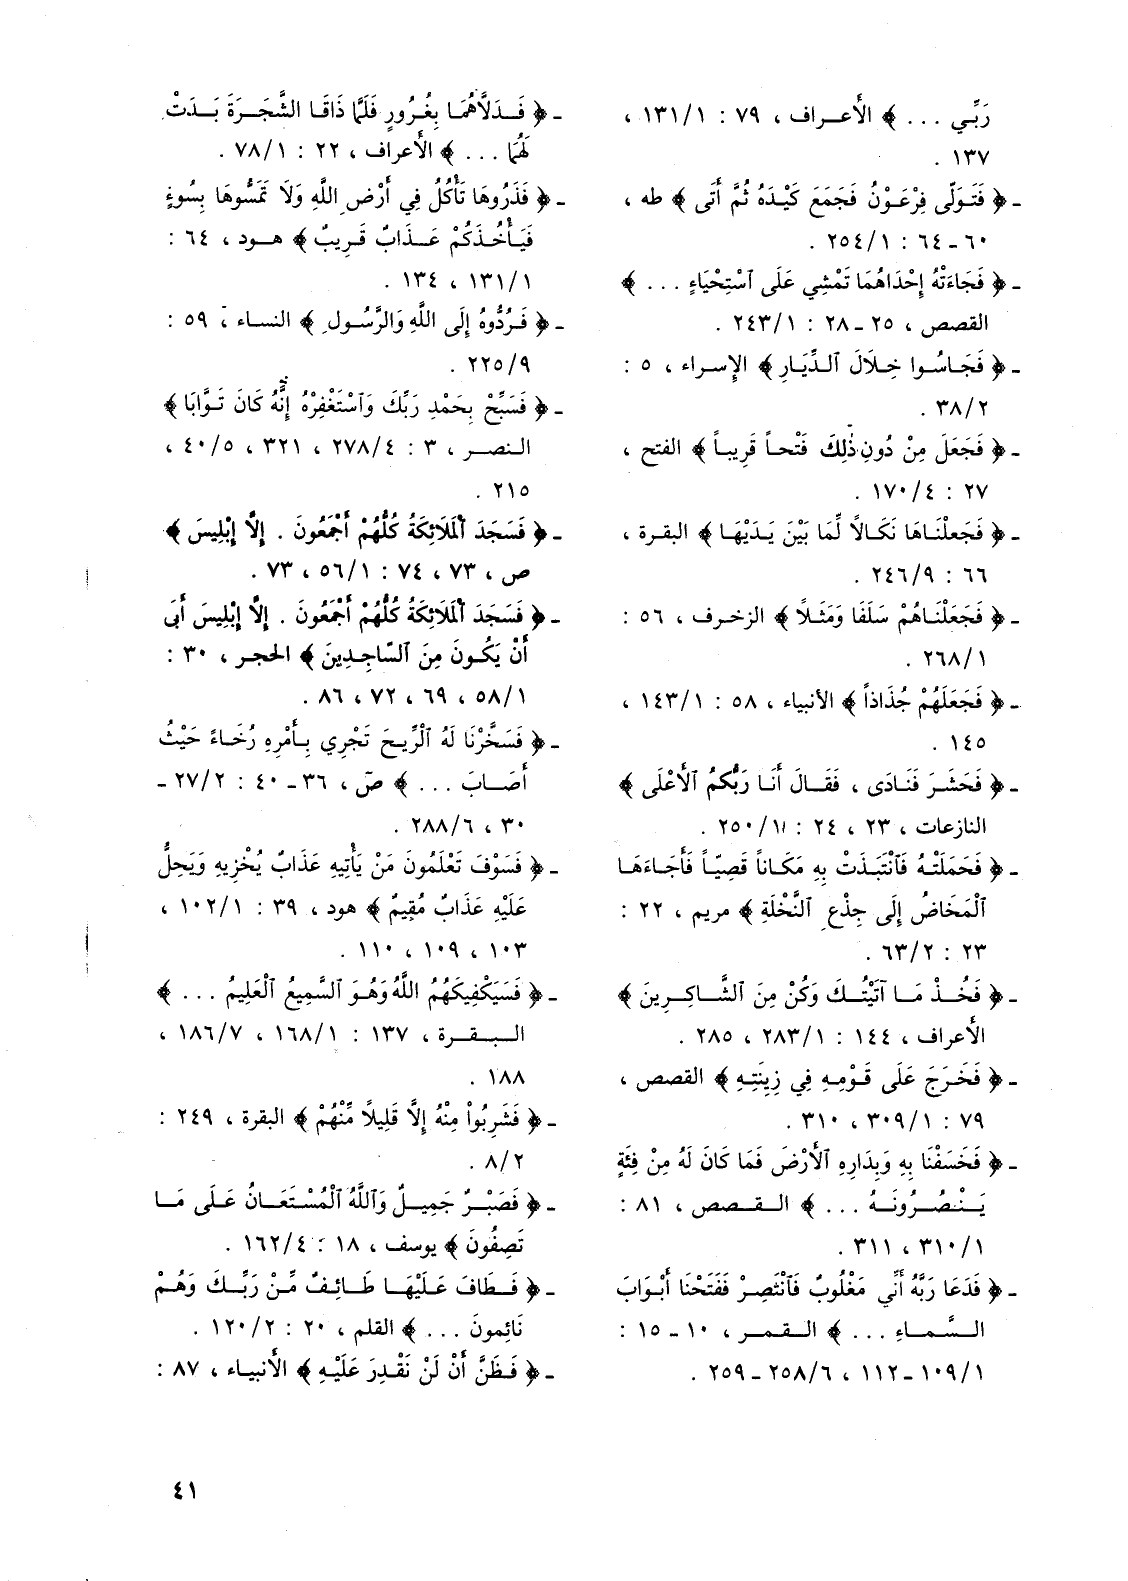 رَبِّي ... ﴾ الأَعراف ، ٧٩ : ١٣١/١ ،
١٣٧ .
ـ ﴿ فَتَوَلَّى فِرْعَوْنُ فَجَمَعَ كَيْدَهُ ثُمَّ أَتَى ﴾ طه ،
٦٠ـ٦٤ : ٢٥٤/١ .
ـ ﴿ فَجَاءَتْهُ إِحْدَاهُمَا تَمْشِي عَلَى ٱسْتِحْيَاءٍ ... ﴾
القصص ، ٢٥ـ٢٨ : ٢٤٣/١ .
ـ ﴿ فَجَاسُوا خِلَالَ ٱلدِّيَارِ ﴾ الإسراء ، ٥ :
٣٨/٢ .
ـ ﴿ فَجَعَلَ مِنْ دُونِ ذٰلِكَ فَتْحاً قَرِيباً ﴾ الفتح ،
٢٧ : ١٧٠/٤ .
ـ ﴿ فَجَعَلْنَاهَا نَكَالاً لِّمَا بَيْنَ يَدَيْهَا ﴾ البقرة ،
٦٦ : ٢٤٦/٩ .
ـ ﴿ فَجَعَلْنَاهُمْ سَلَفَا وَمَثَلاً ﴾ الزخرف ، ٥٦ :
٢٦٨/١ .
ـ ﴿ فَجَعَلَهُمْ جُذَاذاً ﴾ الأنبياء ، ٥٨ : ١٤٣/١ ،
١٤٥ .
ـ ﴿ فَحَشَرَ فَنَادَى ، فَقَالَ أَنَا رَبُّكُمُ ٱلأَعْلَى ﴾
النازعات ، ٢٣ ، ٢٤ : ٢٥٠/١ .
ـ ﴿ فَحَمَلَتْهُ فَٱنْتَبَذَتْ بِهِ مَكَاناً قَصِيّاً فَأَجَاءَهَا
ٱلْمَخَاضُ إِلَى جِذْعِ ٱلنَّخْلَةِ ﴾ مريم ، ٢٢ :
٢٣ : ٦٣/٢ .
ـ ﴿ فَخُذْ مَا آتَيْتُكَ وَكُنْ مِنَ ٱلشَّاكِرِينَ ﴾
الأعراف ، ١٤٤ : ٢٨٣/١ ، ٢٨٥ .
ـ ﴿ فَخَرَجَ عَلَى قَوْمِهِ فِي زِينَتِهِ ﴾ القصص ،
٧٩ : ٣٠٩/١ ، ٣١٠ .
ـ ﴿ فَخَسَفْنَا بِهِ وَبِدَارِهِ ٱلأَرْضَ فَمَا كَانَ لَهُ مِنْ فِئَةٍ
يَنْصُرُونَهُ ... ﴾ القصص ، ٨١ :
٣١٠/١ ، ٣١١ .
ـ ﴿ فَدَعَا رَبَّهُ أَنِّي مَغْلُوبٌ فَٱنْتَصِرْ فَفَتَحْنَا أَبْوَابَ
السَّمَاءِ ... ﴾ القمر ، ١٠ ـ ١٥ :
١٠٩/١ـ١١٢ ، ٢٥٨/٦ـ٢٥٩ .
ـ ﴿ فَدَلَّاهُمَا بِغُرُورٍ فَلَمَّا ذَاقَا الشَّجَرَةَ بَدَتْ
لَهُمَا ... ﴾ الأعراف ، ٢٢ : ٧٨/١ .
ـ ﴿ فَذَرُوهَا تَأْكُلُ فِي أَرْضِ اللَّهِ وَلَا تَمَسُّوهَا بِسُوءٍ
فَيَأْخُذَكُمْ عَذَابٌ قَرِيبٌ ﴾ هود ، ٦٤ :
١٣١/١ ، ١٣٤ .
ـ ﴿ فَرُدُّوهُ إِلَى اللَّهِ وَالرَّسُولِ ﴾ النساء ، ٥٩ :
٢٢٥/٩ .
ـ ﴿ فَسَبِّحْ بِحَمْدِ رَبِّكَ وَٱسْتَغْفِرْهُ إِنَّهُ كَانَ تَوَّابَا ﴾
النصر ، ٣ : ٢٧٨/٤ ، ٣٢١ ، ٤٠/٥ ،
٢١٥ .
ـ ﴿ فَسَجَدَ ٱلْمَلَائِكَةُ كُلُّهُمْ أَجْمَعُونَ . إِلَّا إِبْلِيسَ ﴾
ص ، ٧٣ ، ٧٤ : ٥٦/١ ، ٧٣ .
ـ ﴿ فَسَجَدَ ٱلْمَلَائِكَةُ كُلُّهُمْ أَجْمَعُونَ . إِلَّا إِبْلِيسَ أَبَى
أَنْ يَكُونَ مِنَ ٱلسَّاجِدِينَ ﴾ الحجر ، ٣٠ :
٥٨/١ ، ٦٩ ، ٧٢ ، ٨٦ .
ـ ﴿ فَسَخَّرْنَا لَهُ ٱلْرِّيحَ تَجْرِي بِأَمْرِهِ رُخَاءً حَيْثُ
أَصَابَ ... ﴾ صۤ ، ٣٦ـ ٤٠ : ٢٧/٢ ـ
٣٠ ، ٢٨٨/٦ .
ـ ﴿ فَسَوْفَ تَعْلَمُونَ مَنْ يَأْتِيهِ عَذَابٌ يُخْزِيهِ وَيَحِلُّ
عَلَيْهِ عَذَابٌ مُقِيمٌ ﴾ هود ، ٣٩ : ١٠٢/١ ،
١٠٣ ، ١٠٩ ، ١١٠ .
ـ ﴿ فَسَيَكْفِيكَهُمُ اللَّهُ وَهُوَ ٱلسَّمِيعُ ٱلْعَلِيمُ ... ﴾
البقرة ، ١٣٧ : ١٦٨/١ ، ١٨٦/٧ ،
١٨٨ .
ـ ﴿ فَشَرِبُواْ مِنْهُ إِلَّا قَلِيلاً مِّنْهُمْ ﴾ البقرة ، ٢٤٩ :
٨/٢ .
ـ ﴿ فَصَبْرٌ جَمِيلٌ وَٱللَّهُ ٱلْمُسْتَعَانُ عَلَى مَا
تَصِفُونَ ﴾ يوسف ، ١٨ : ١٦٢/٤ .
ـ ﴿ فَطَافَ عَلَيْهَا طَائِفٌ مِّنْ رَبِّكَ وَهُمْ
نَائِمونَ ... ﴾ القلم ، ٢٠ : ١٢٠/٢ .
ـ ﴿ فَظَنَّ أَنْ لَنْ نَقْدِرَ عَلَيْهِ ﴾ الأنبياء ، ٨٧ :
٤١